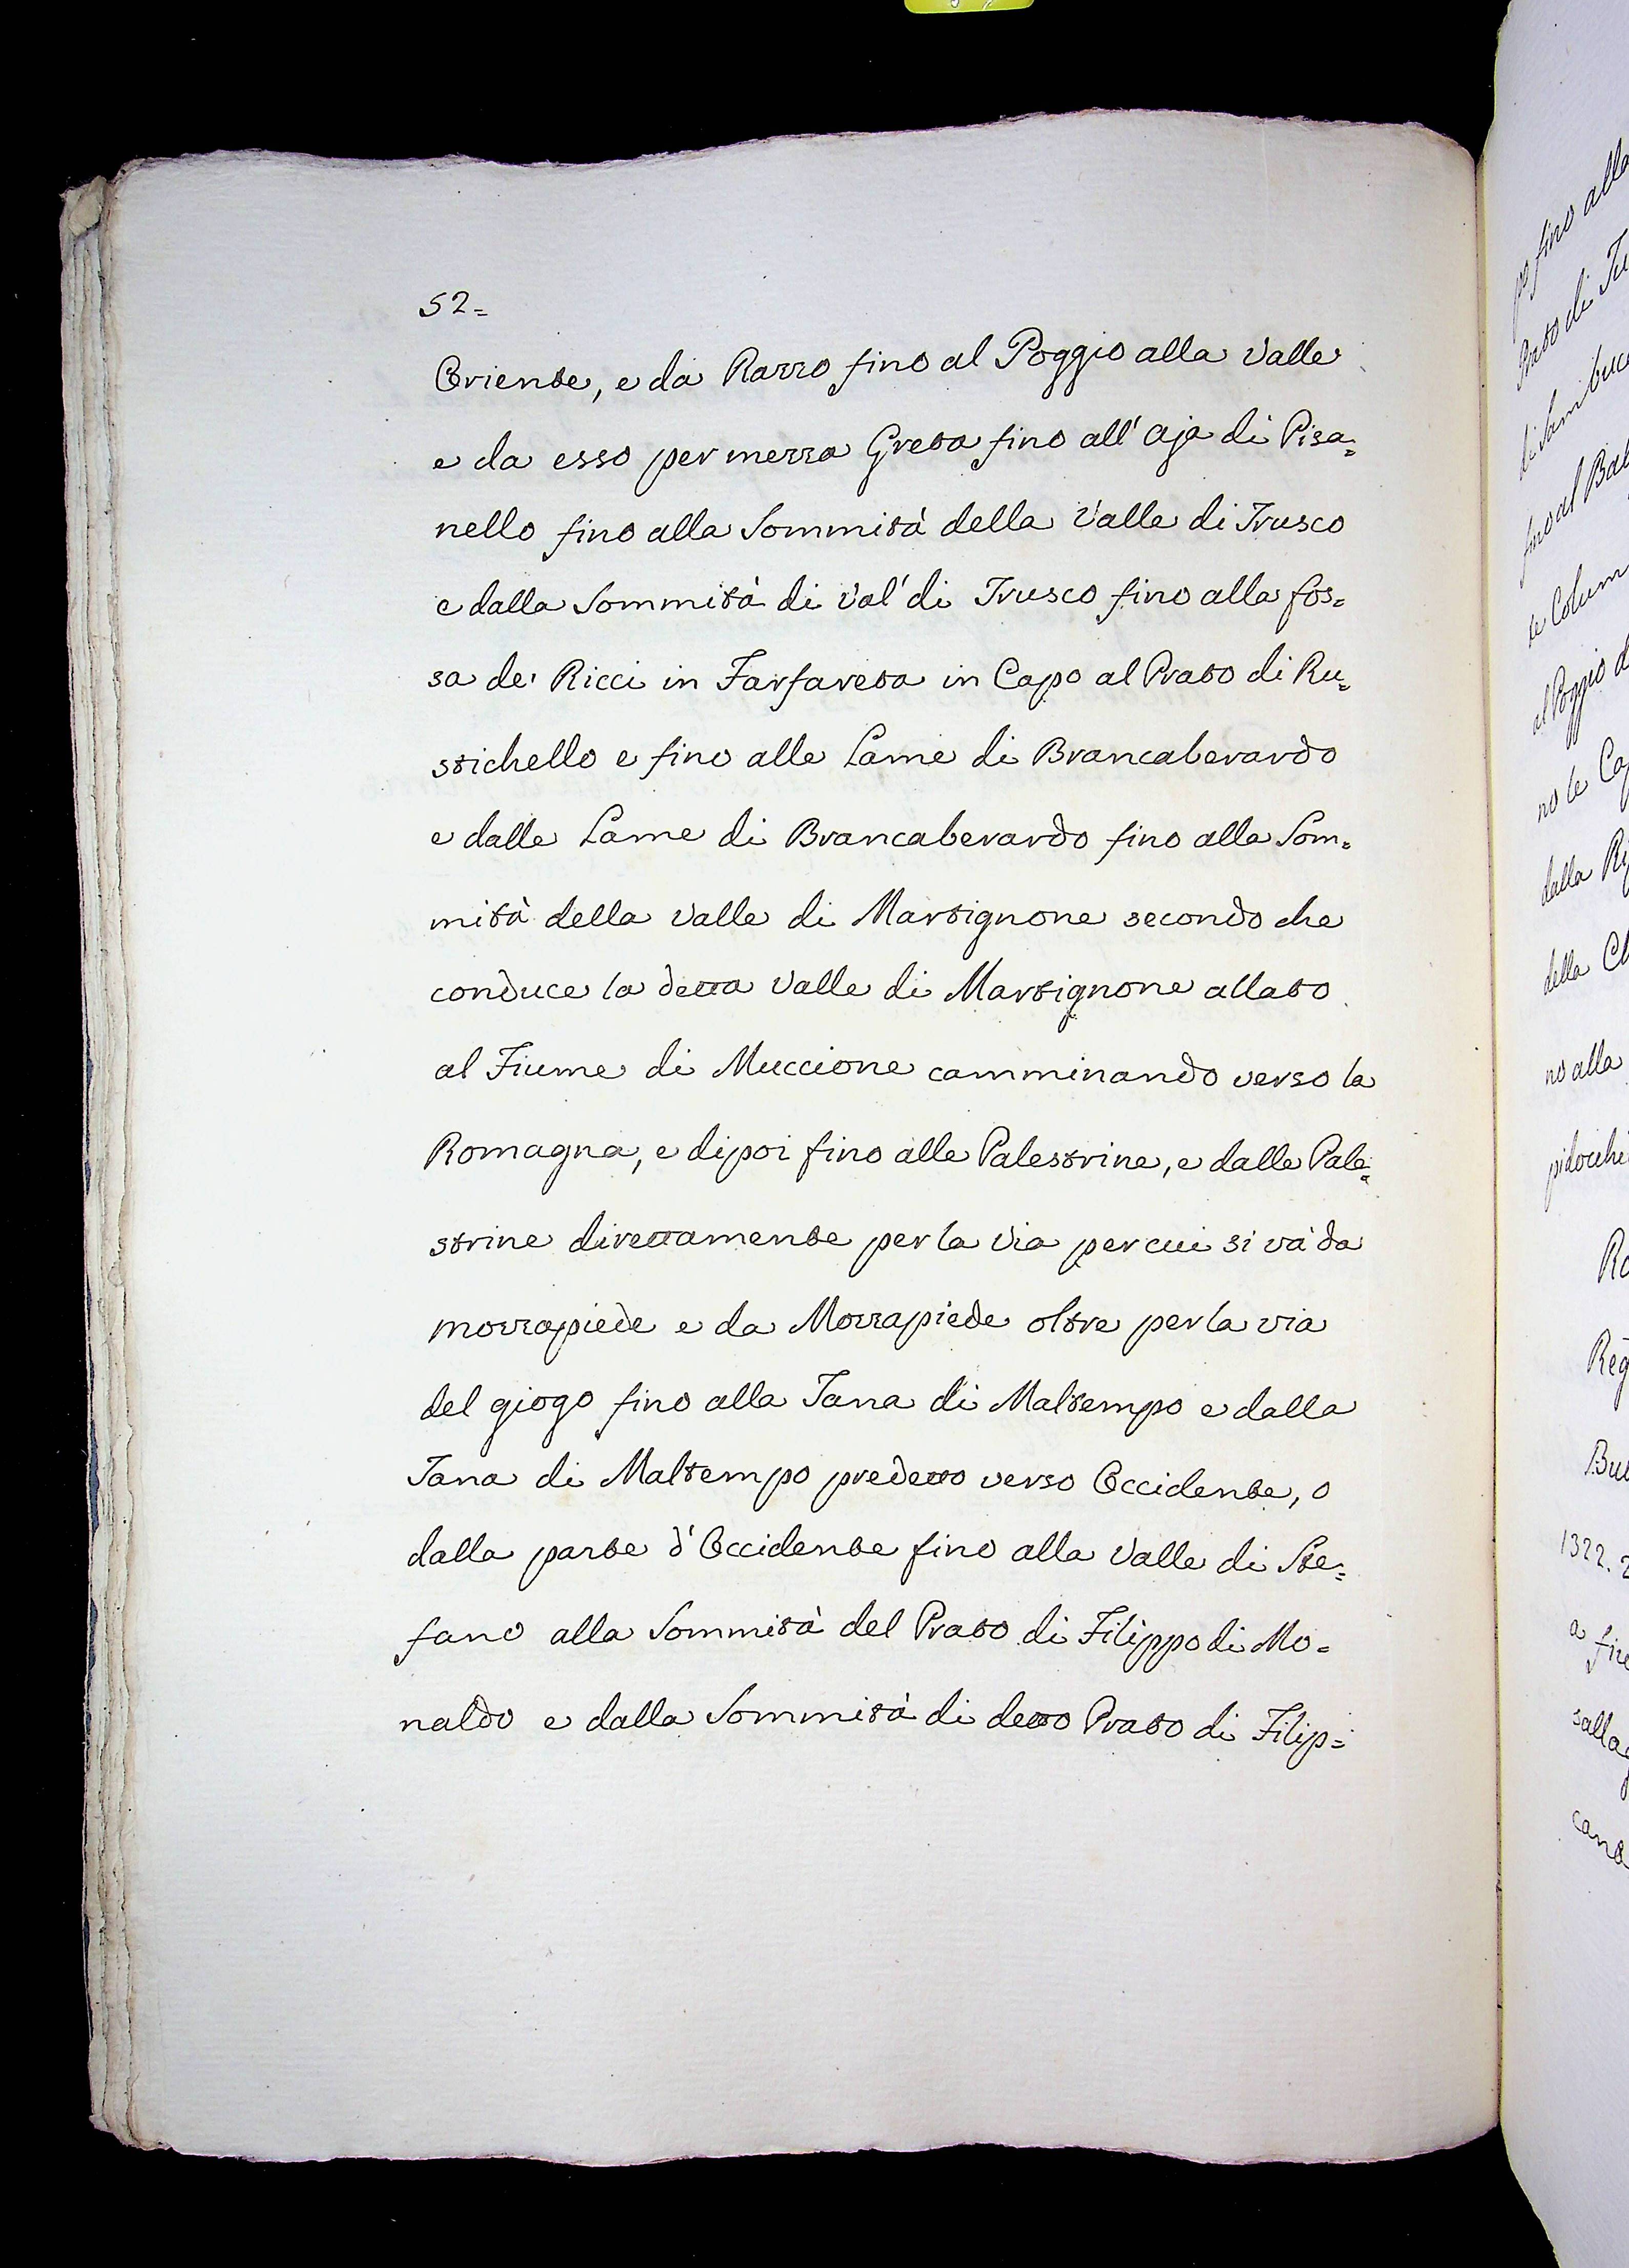 52=
Oriente, e da Razzo fino al Poggio alla Valle
e da esso per mezza Greta fino all' Aja di Pisa=
nello fino alla Sommità della Valle di Trusco
e dalla Sommità di Val' di Trusco fino alla fos=
sa de' Ricci in Farfareta in Capo al Prato di Ru=
stichello e fino alle Lame di Brancaberardo
e dalle Lame di Brancaberardo fino alla Som=
mità della Valle di Martignone secondo che
conduce la detta Valle di Martignone allato
al Fiume di Muccione camminando verso la
Romagna, e dipoi fino alle Palestrine, e dalle Pale=
strine direttamente per la Via per cui si và da
mozzapiede e da Mozzapiede oltre per la via
del giogo fino alla Tana di Maltempo e dalla
Tana di Maltempo predetto verso Occidente, o
dalla parte d' Occidente fino alla Valle di Ste=
fano alla Sommità del Prato di Filippo di Mo=
naldo e dalla Sommità di detto Prato di Filip=
po fino alla
Prato di
fino al
al Poggio
no le
dalla
della
no alla
1322.
a